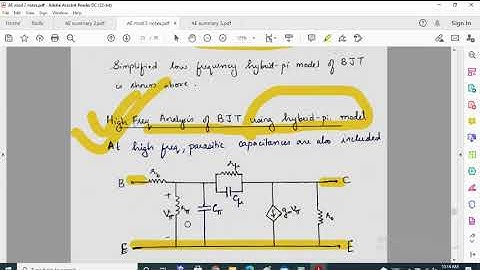 AE mod 2 notes.pdf - Adobe Acrobat Reader DC (32-bit)
File Edit View Sign Window Help
Home Tools AE summary 2.pdf AE mod 2 notes.pdf × AE summary 3.pdf
Sign In
Simplified low frequency hybrid-pi model of BJT
is shown above.
High Freq Analysis of BJT using hybrid-pi model
At high freq, parasitic capacitances are also included
B rb rμ C
Cμ
+
Vπ rπ Cπ gmVπ ro
-
E E
10:14 AM